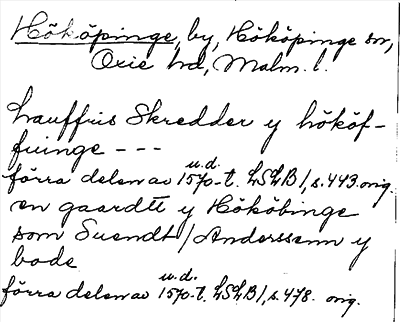 Hököpinge, by, Hököpinge sn,
Oxie hd, Malm. l.
Lauffris Skredder y hököf-
fuinge ---
u.d.
förra delen av 1570-t. LSLB 1, s. 443. orig.
en gaardtt y Hököbinge
som Suendt/Anderssenn y
bode
u.d.
förra delen av 1570-t. LSLB 1, s. 478. orig.